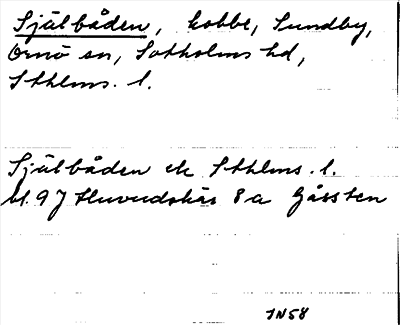 Själbåden, kobbe, Sundby,
Ornö sn, Sotholms hd,
Sthlms. l.
Själbåden ek Sthlms. l.
bl. 97 Huvudskär 8 a Gåssten
IN58